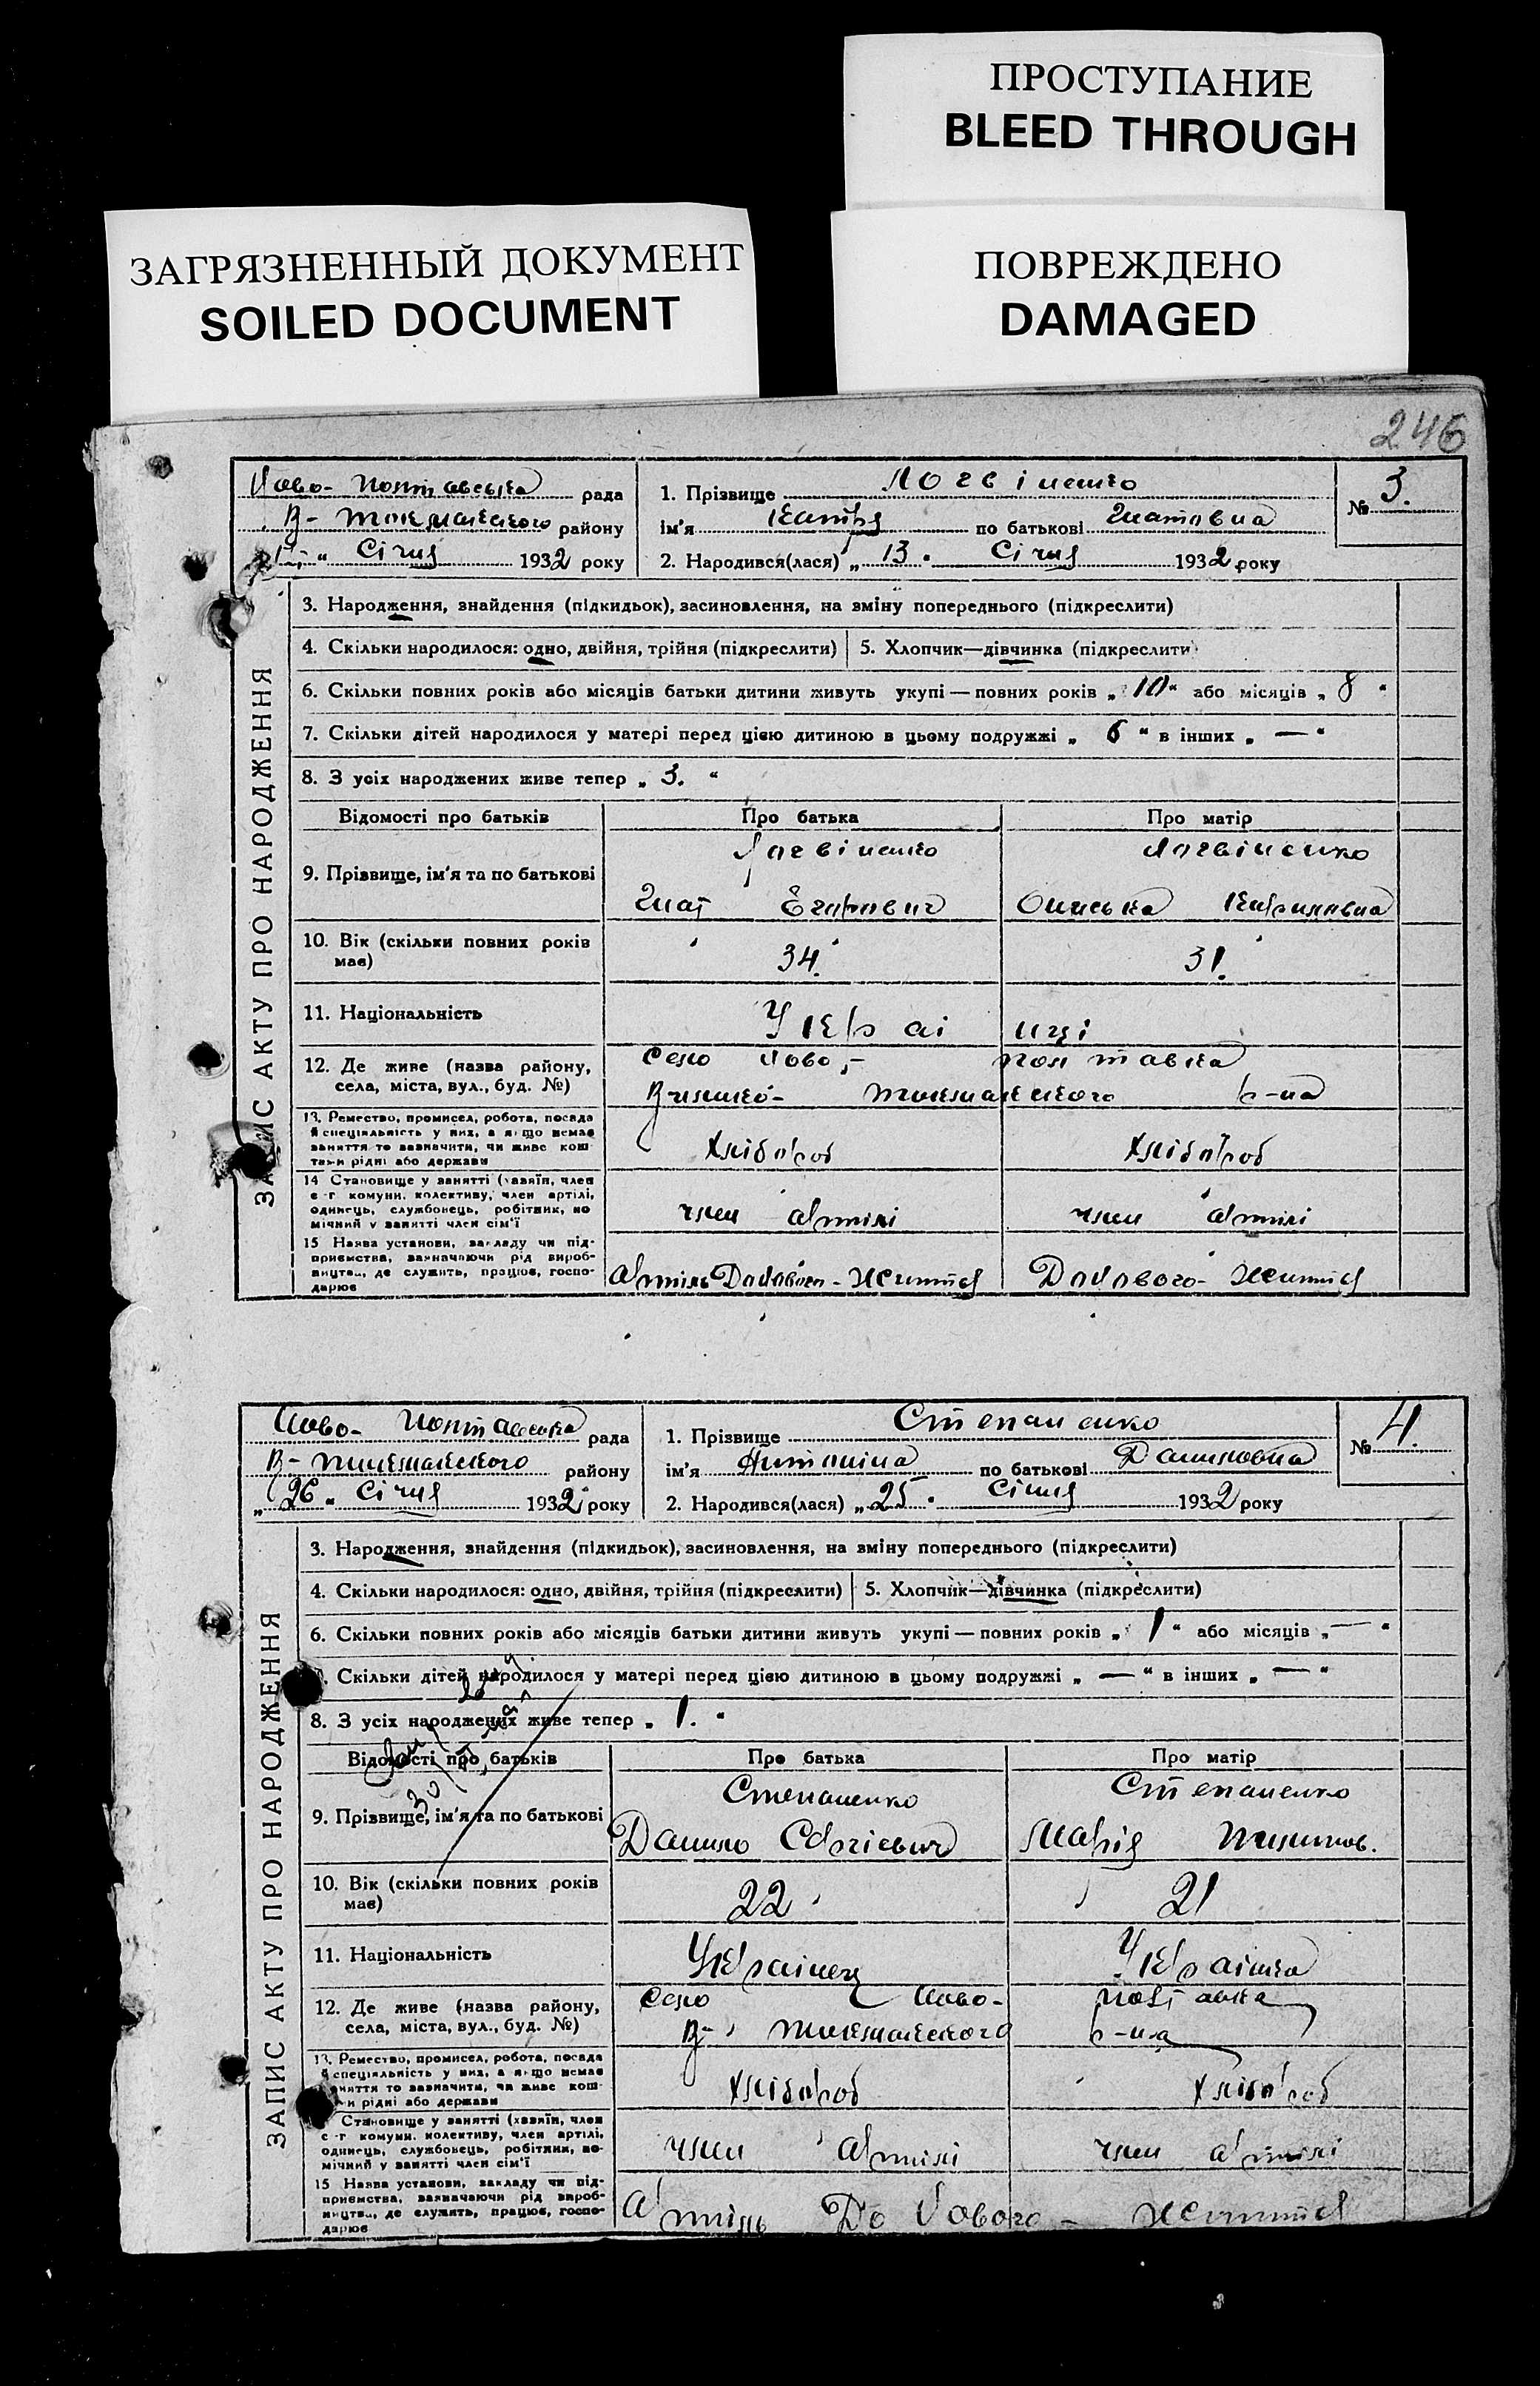 ПРОСТУПАНИЕ
BLEED THROUGH
ЗАГРЯЗНЕННЫЙ ДОКУМЕНТ
SOILED DOCUMENT
ПОВРЕЖДЕНО
DAMAGED
246
Ново-Полтавська рада
В-Токмацького району
Січня 1932 року
1. Прізвище Логвіненко
ім'я Катря по батькові Гнатовна
2. Народився(лася) „13" Січня 1932 року
№ 3.
ЗАПИС АКТУ ПРО НАРОДЖЕННЯ
3. Народження, знайдення (підкидьок), засиновлення, на зміну попереднього (підкреслити)
4. Скільки народилося: одно, двійня, трійня (підкреслити) 5. Хлопчик—дівчинка (підкреслити)
6. Скільки повних років або місяців батьки дитини живуть укупі — повних років „10" або місяців „8"
7. Скільки дітей народилося у матері перед цією дитиною в цьому подружжі „6" в інших „—"
8. З усіх народжених живе тепер „3."
Відомості про батьків Про батька Про матір
9. Прізвище, ім'я та по батькові Логвіненко Логвіненко
Гнат Єгорович Кириловна
10. Вік (скільки повних років має) 34. 31.
11. Національність Украінці
12. Де живе (назва району, села, міста, вул., буд. №) Село Ново-Полтавка
Токмацького р-на
13. Ремество, промисел, робота, посада й спеціяльність у них, а якщо немає заняття то зазначити, чи живе коштами рідні або держави Хлібороб Хлібороб
14 Становище у занятті (хазяїн, член с-г комуни, колективу, член артілі, одинець, службовець, робітник, помічний у занятті член сім'ї член Артілі член Артілі
15 Назва установи, закладу чи підприємства, зазначаючи рід виробництва, де служить, працює, господарює Артіль До Нового-Життя До Нового-Життя
Ново-Полтавська рада
В-Токмацького району
„26" Січня 1932 року
1. Прізвище Степаненко
ім'я Антоніна по батькові Даниловна
2. Народився(лася) „25" Січня 1932 року
№ 4.
ЗАПИС АКТУ ПРО НАРОДЖЕННЯ
3. Народження, знайдення (підкидьок), засиновлення, на зміну попереднього (підкреслити)
4. Скільки народилося: одно, двійня, трійня (підкреслити) 5. Хлопчик—дівчинка (підкреслити)
6. Скільки повних років або місяців батьки дитини живуть укупі — повних років „1" або місяців „—"
Скільки дітей народилося у матері перед цією дитиною в цьому подружжі „—" в інших „—"
8. З усіх народжених живе тепер „1."
Відомості про батьків Про батька Про матір
9. Прізвище, ім'я та по батькові Степаненко Степаненко
Данило Сергієвич Марія
10. Вік (скільки повних років має) 22 21
11. Національність Украінец Украінка
12. Де живе (назва району, села, міста, вул., буд. №) Село Ново-Полтавка
В-Токмацького р-на
13. Ремество, промисел, робота, посада й спеціяльність у них, а якщо немає заняття то зазначити, чи живе коштами рідні або держави Хлібороб Хлібороб
Становище у занятті (хазяїн, член с-г комуни, колективу, член артілі, одинець, службовець, робітник, помічний у занятті член сім'ї член Артілі член Артілі
15 Назва установи, закладу чи підприємства, зазначаючи рід виробництва, де служить, працює, господарює Артіль До Нового-Життя